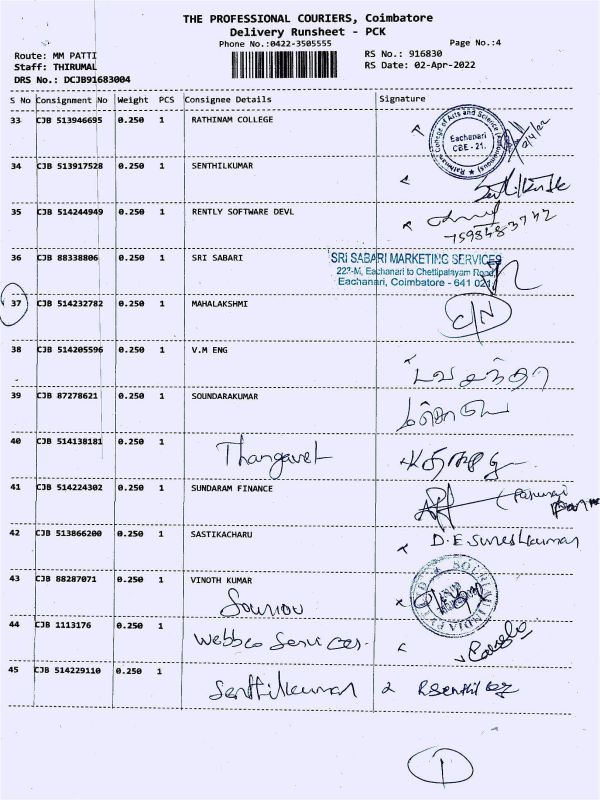 THE PROFESSIONAL COURIERS, Coimbatore
Delivery Runsheet - PCK
Phone No.:0422-3505555
Page No.:4
Route: MM PATTI
RS No.: 916830
Staff: THIRUMAL
RS Date: 02-Apr-2022
DRS No.: DCJB91683004
S No Consignment No Weight PCS Consignee Details Signature
33 CJB 513946695 0.250 1 RATHINAM COLLEGE
Eachanari
CBE - 21.
34 CJB 513917528 0.250 1 SENTHILKUMAR
35 CJB 514244949 0.250 1 RENTLY SOFTWARE DEVL
36 CJB 88338806 0.250 1 SRI SABARI
SRI SABARI MARKETING SERVICES
223-M, Eachanari to Chettipalayam Road,
Eachanari, Coimbatore - 641 021
37 CJB 514232782 0.250 1 MAHALAKSHMI
C/N
38 CJB 514205596 0.250 1 V.M ENG
39 CJB 87278621 0.250 1 SOUNDARAKUMAR
40 CJB 514138181 0.250 1 Thangavel
41 CJB 514224302 0.250 1 SUNDARAM FINANCE
42 CJB 513866200 0.250 1 SASTIKACHARU D.E.Sureshkumar
43 CJB 88287071 0.250 1 VINOTH KUMAR
44 CJB 1113176 0.250 1 Webbco Services
45 CJB 514229110 0.250 1 Senthilkumar
1